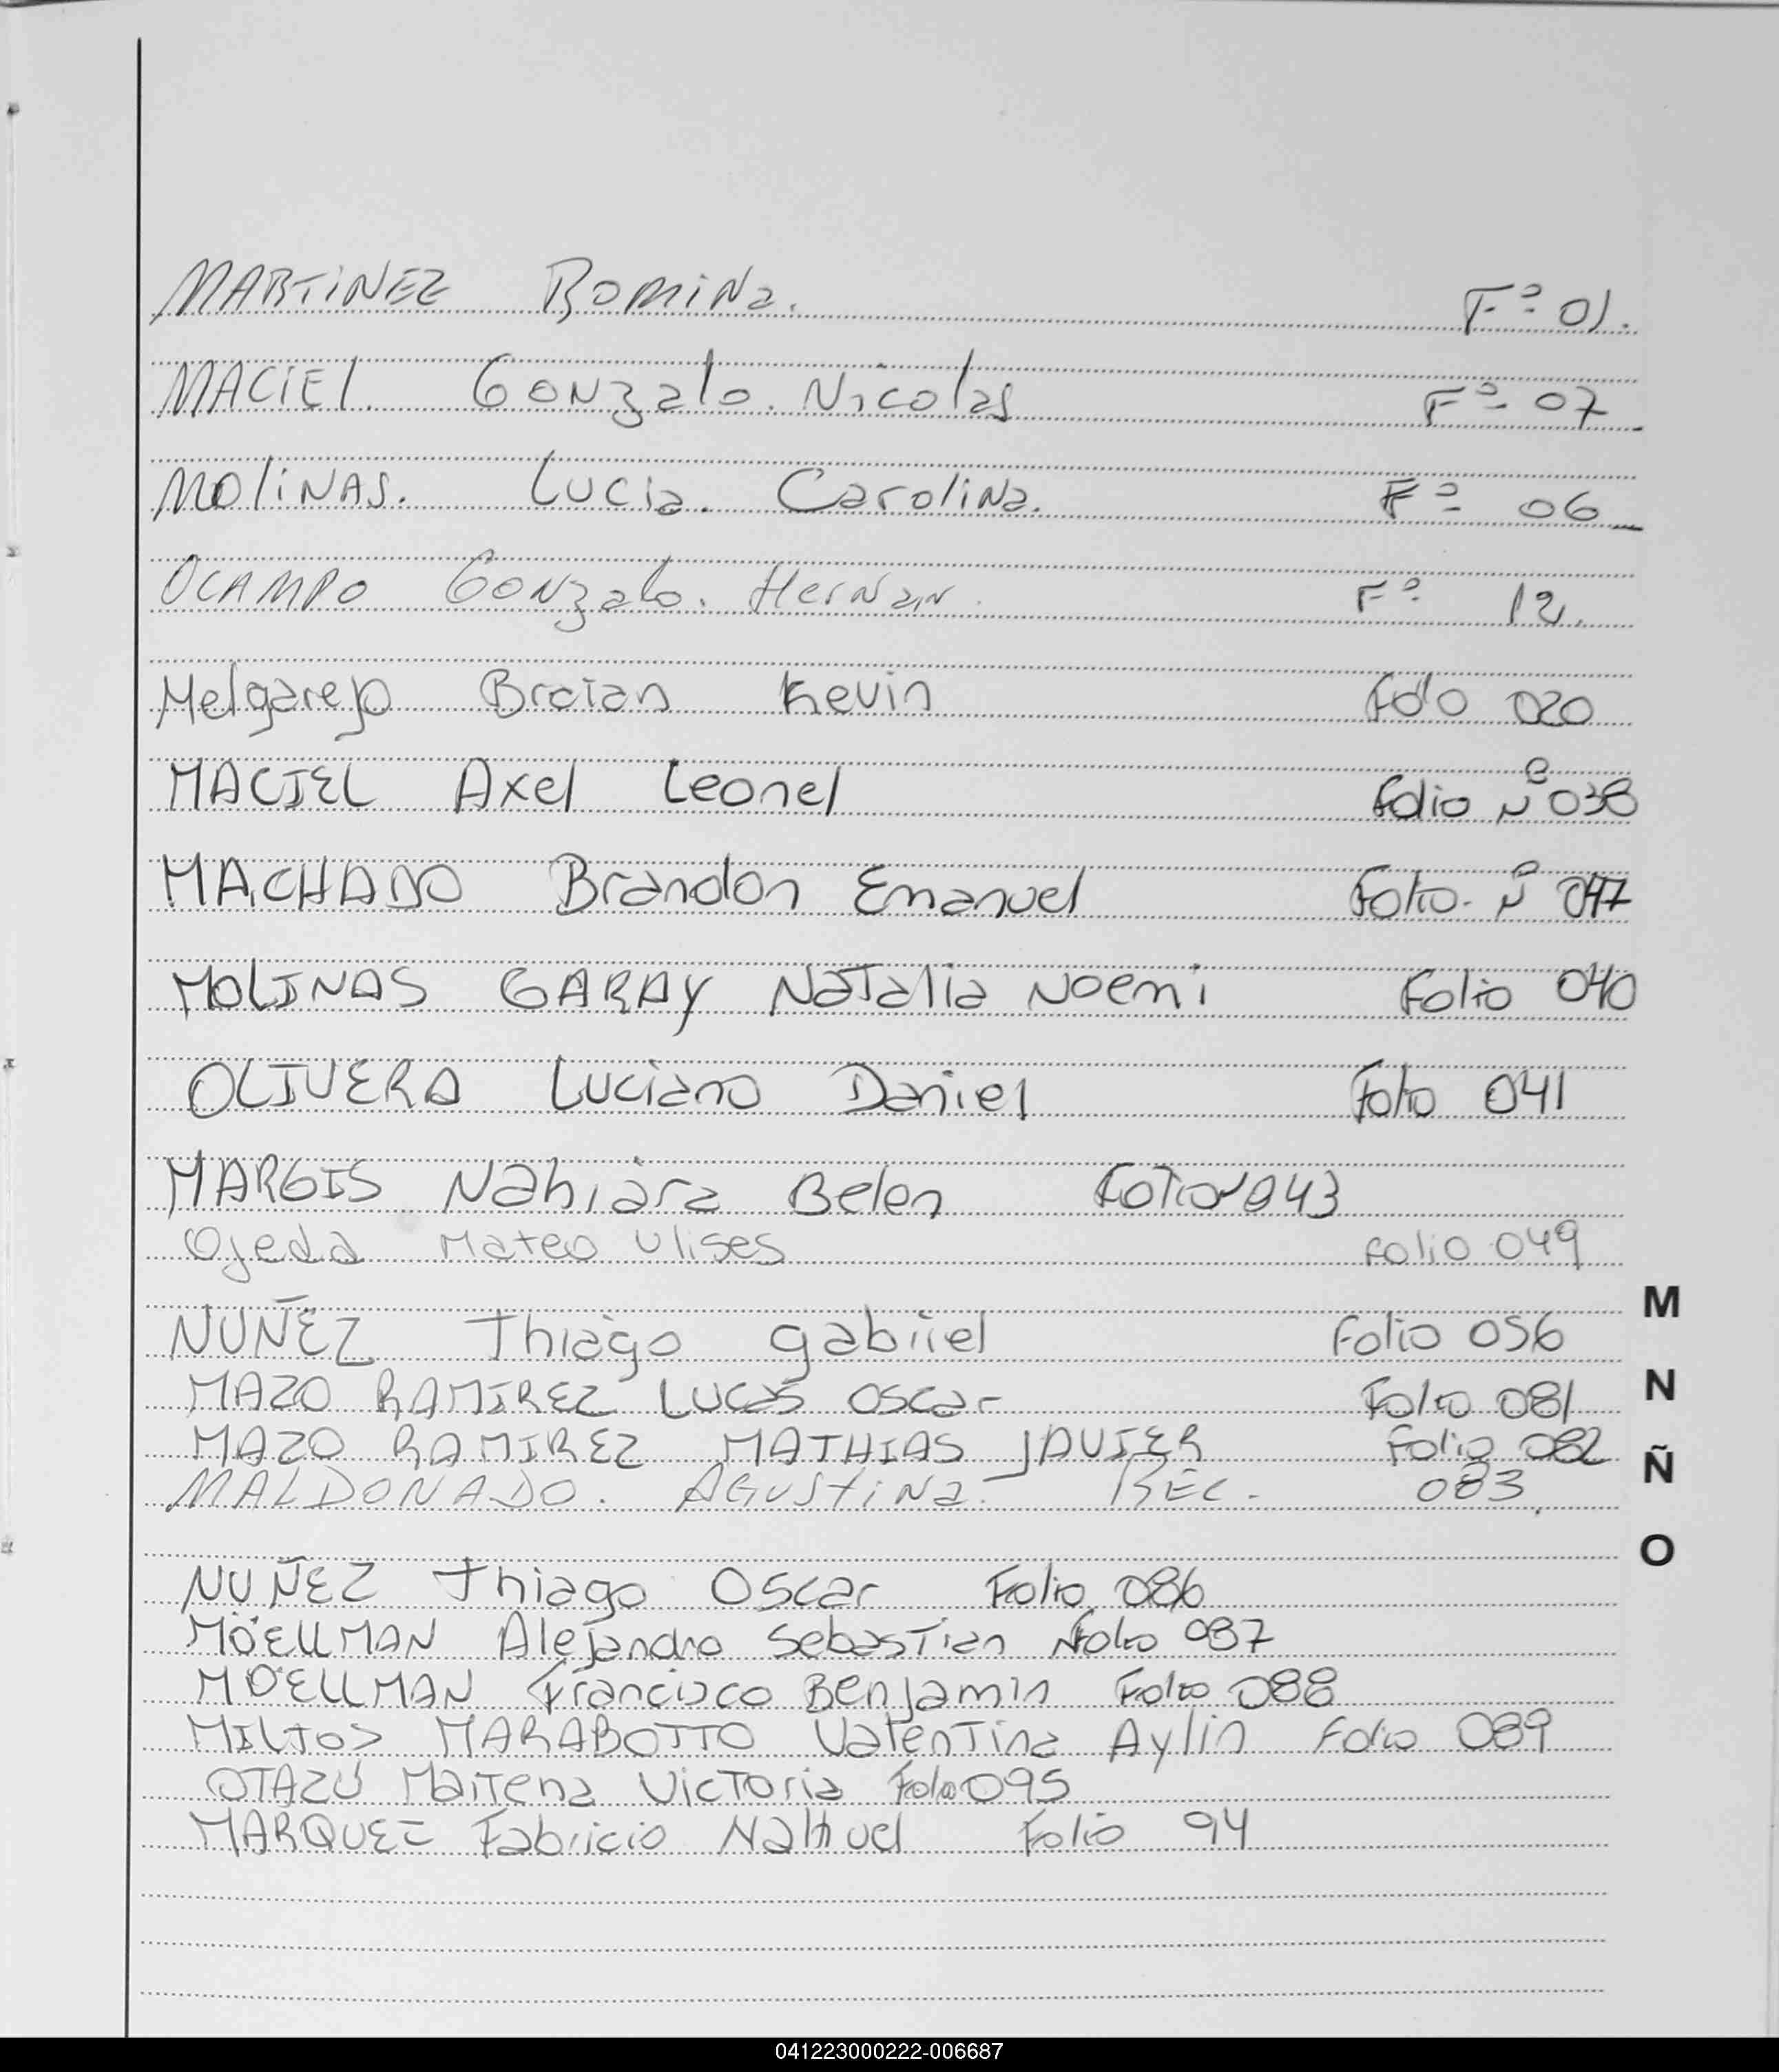 MARTINEZ Romina. Fº 01.
MACIEL. Gonzalo. Nicolas Fº 07
MOLINAS. Lucia. Carolina. Fº 06
OCAMPO Gonzalo. Hernan. Fº 12.
Melgarejo Braian Kevin Folio 020
MACIEL Axel Leonel Folio Nº 038
MACHADO Brandon Emanuel Folio. Nº 047
MOLINAS GARAY Natalia Noemi Folio 040
OLIVERA Luciano Daniel Folio 041
MARGIS Nahiara Belen Folio 043
Ojeda Mateo Ulises Folio 049
NUÑEZ Thiago gabriel Folio 056
M
MAZO RAMIREZ LUCAS OSCAR Folio 081
N
MAZO RAMIREZ MATHIAS JAVIER Folio 082
Ñ
MALDONADO. Agustina. 083.
O
NUÑEZ Thiago Oscar Folio 086
MÖELLMAN Alejandro Sebastian Folio 087
MÖELLMAN Francisco Benjamin Folio 088
MILTOS MARABOTTO Valentina Aylin Folio 089
OTAZÚ Maitena Victoria Folio 095
MARQUEZ Fabricio Nahuel Folio 94
041223000222-006687